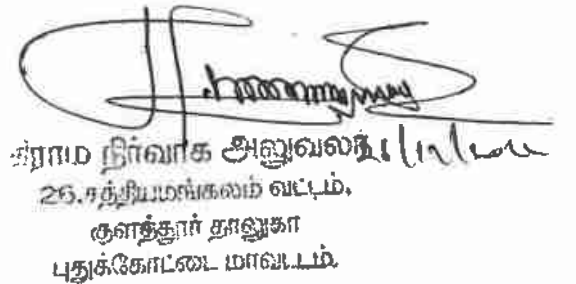 கிராம நிர்வாக அலுவலர்
26.சத்தியமங்கலம் வட்டம்,
குளத்தூர் தாலுகா
புதுக்கோட்டை மாவட்டம்.